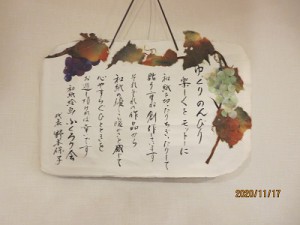 ゆっくり のんびり
楽しくをモットーに
和紙を切ったりちぎったりして
貼り重ね創作しています
それぞれの作品から
和紙の優しい暖かさを感じて
心やすらぐひとときを
お過し頂ければ幸いです
和紙絵画 ふくろう会
代表
2020/11/17